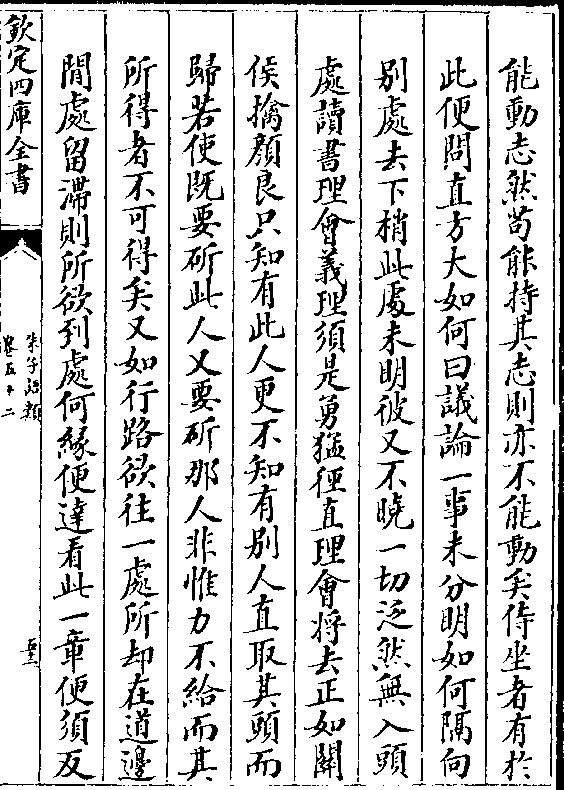 能動志然苟能持其志則亦不能動矣侍坐者有於
此便問直方大如何曰議論一事未分明如何隔向
别處去下梢此處未明彼又不曉一切泛然無入頭
處讀書理會義理須是勇猛徑直理會將去正如關
侯擒顔良只知有此人更不知有别人直取其頭而
歸若使既要斫此人又要斫那人非惟力不給而其
所得者不可得矣又如行路欲往一處所却在道邊
閒處留滯則所欲到處何緣便達看此一章便須反
欽定四庫全書
朱子語類
卷五十二